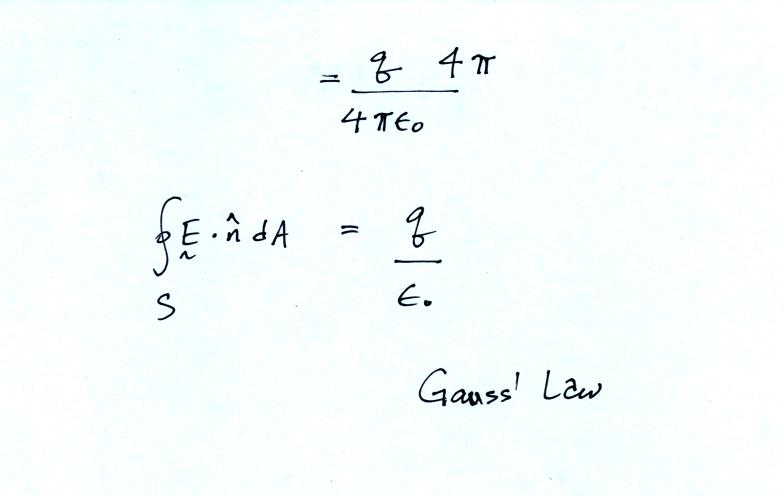 = q 4π / 4πε₀
∮_S Ḛ · n̂ dA = q / ε₀
Gauss' Law